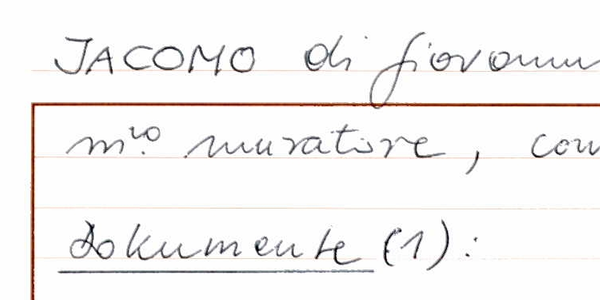 JACOMO di Giovanni
m.ro muratore, com
Dokumente (1):